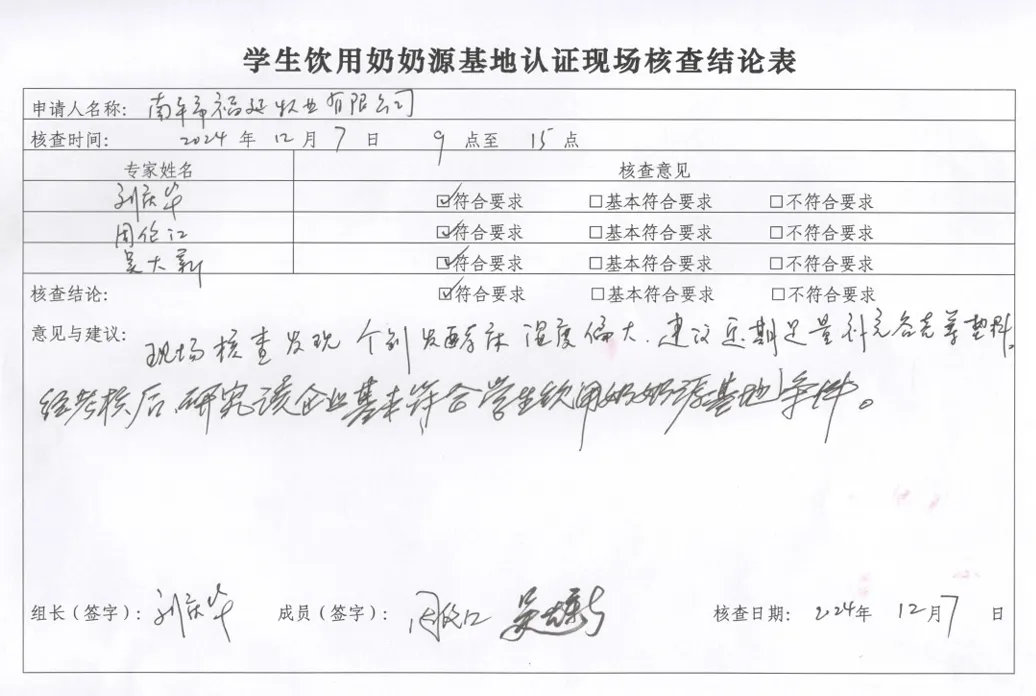 学生饮用奶奶源基地认证现场核查结论表
申请人名称: 南平市福延牧业有限公司
核查时间: 2024 年 12 月 7 日 9 点至 15 点
专家姓名 核查意见
刘庆华 ☑符合要求 □基本符合要求 □不符合要求
周伦江 ☑符合要求 □基本符合要求 □不符合要求
吴大新 ☑符合要求 □基本符合要求 □不符合要求
核查结论: ☑符合要求 □基本符合要求 □不符合要求
意见与建议: 现场核查发现个别发酵床湿度偏大.建议近期足量补充谷壳等垫料.
经考核后,研究该企业基本符合学生饮用奶奶源基地条件。
组长(签字): 刘庆华 成员(签字): 周伦江 吴大新 核查日期: 2024年 12月7 日